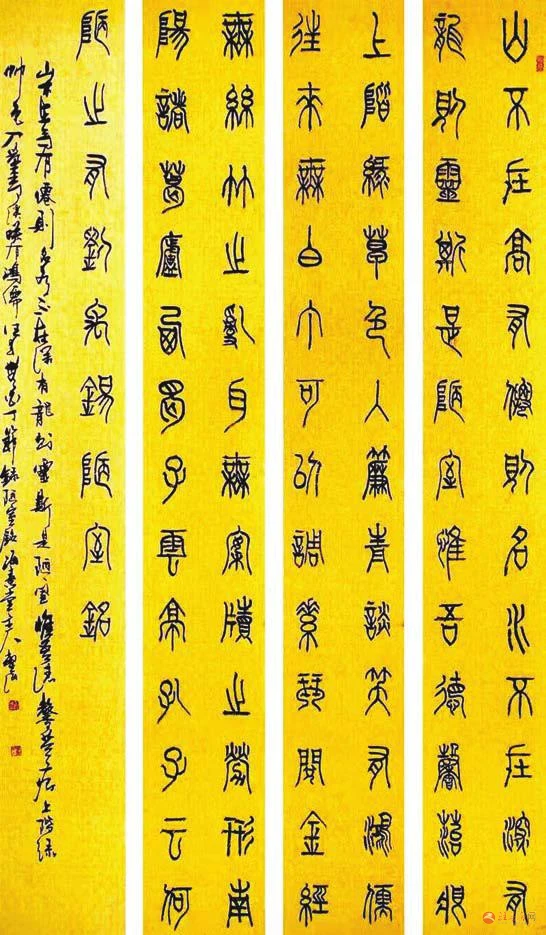 山不在高有僊則名水不在深有
龍則靈斯是陋室惟吾德馨苔痕
上階綠草色入簾青談笑有鴻儒
往來無白丁可以調素琴閱金經
無絲竹之亂耳無案牘之勞形南
陽諸葛廬西蜀子雲亭孔子云何
陋之有劉禹錫陋室銘
山不在高有僊則名水不在深有龍則靈斯是陋室惟吾德馨苔痕上階綠
草色入簾青談笑有鴻儒往來無白丁節錄陋室銘